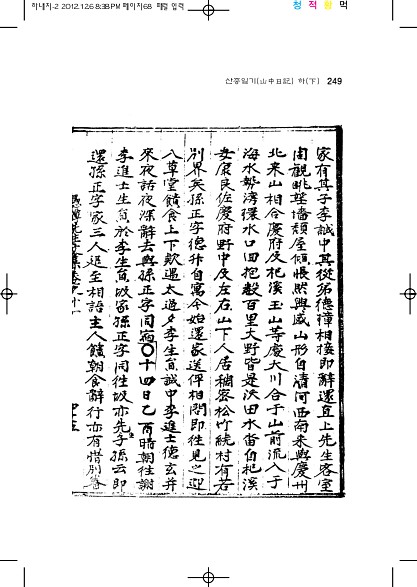 하내지-2 2012.12.6 8:38 PM 페이지68 패럴 입력
청 적 황 먹
산중일기(山中日記) 하(下) 249
家有其子李誠中其從弟德璋相接卽辭還直上先生客室
周觀眺望墻頹屋傾悵然興感山形自淸河西南來與慶州
北來山相合慶府及杞溪玉山等處大川合于山前流入于
海水勢
水口回抱數百里大野皆是沃田水畓自杞溪
安康良佐慶府野中及左右山下人居稠密松竹繞村有若
別界矣孫正字德升自寓今始還家送伻相問卽往見之迎
八草堂饋食上下款遇太過夕李生
誠中李進士德玄幷
來夜話夜深辭去與孫正字同宿○十四日乙酉晴朝往謝
李進士生
於李生
家孫正字同往故亦先
子孫云卽
還孫正字家三人追至相語主人饋朝食辭行亦有惜別